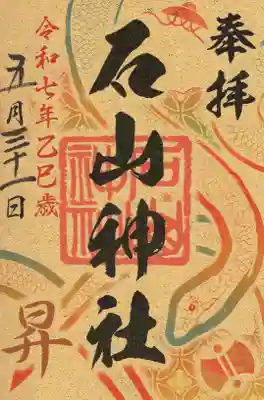 奉拝
石山神社
令和七年乙巳歳
五月三十一日
昇